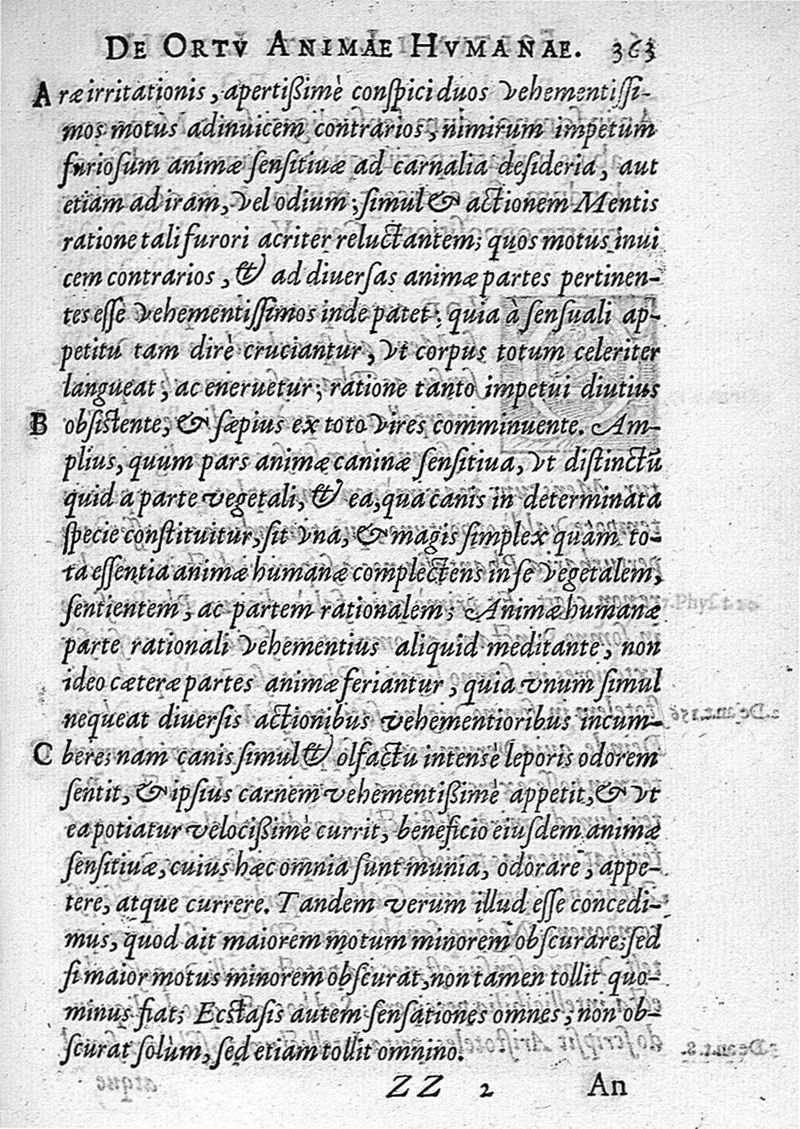 DE ORTV ANIMAE HVMANAE. 363
A ræ irritationis, apertißimè conspici duos vehementissi-
mos motus adinuicem contrarios, nimirum impetum
furiosum animæ sensitiuæ ad carnalia desideria, aut
etiam ad iram, vel odium; simul & actionem Mentis
ratione tali furori acriter reluctantem; quos motus inui
cem contrarios, & ad diuersas animæ partes pertinen-
tes esse vehementissimos inde patet; quia à sensuali ap-
petitu tam dirè cruciantur, vt corpus totum celeriter
langueat, ac eneruetur; ratione tanto impetui diutius
B obsistente, & sæpius ex toto vires comminuente. Am-
plius, quum pars animæ caninæ sensitiua, vt distinctū
quid a parte vegetali, & ea, qua canis in determinata
specie constituitur, sit vna, & magis simplex quam to-
ta essentia animæ humanæ complectens in se vegetalem,
sentientem, ac partem rationalem; Animæ humanæ
parte rationali vehementius aliquid meditante, non
ideo cæteræ partes animæ feriantur, quia vnum simul
nequeat diuersis actionibus vehementioribus incum-
C bere; nam canis simul & olfactu intensè leporis odorem
sentit, & ipsius carnem vehementißimè appetit, & vt
ea potiatur velocißimè currit, beneficio eiusdem animæ
sensitiuæ, cuius hæc omnia sunt munia, odorare, appe-
tere, atque currere. Tandem verum illud esse concedi-
mus, quod ait maiorem motum minorem obscurare; sed
si maior motus minorem obscurat, non tamen tollit quo-
minus fiat; Ecstasis autem sensationes omnes, non ob-
scurat solùm, sed etiam tollit omnino.
ZZ 2 An